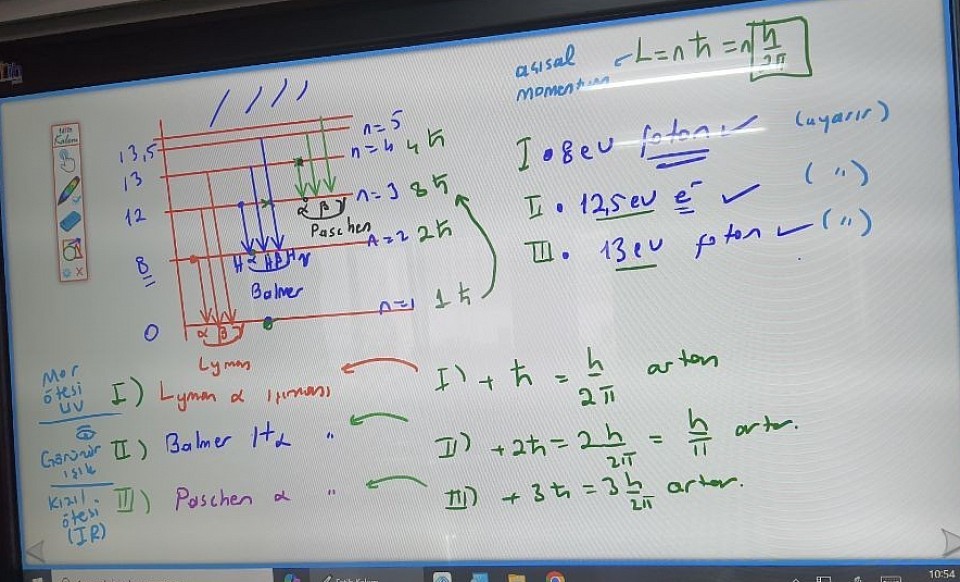 açısal momentum
L = n ħ = n h/2π
13,5
13
12
8
0
n=5
n=4 4ħ
n=3 3ħ
n=2 2ħ
n=1 1ħ
α β γ
Paschen
Hα Hβ Hγ
Balmer
α β γ
Lyman
I • 8 eV foton ✓ (uyarır)
II • 12,5 eV e⁻ ✓ ( " )
III • 13 eV foton ✓ ( " )
Mor ötesi UV
I) Lyman α ışıması
Görünür ışık
II) Balmer Hα "
Kızıl ötesi (IR)
III) Paschen α "
I) + ħ = h/2π artar
II) + 2ħ = 2h/2π = h/π artar.
III) + 3ħ = 3h/2π artar.
Kalem
10:54